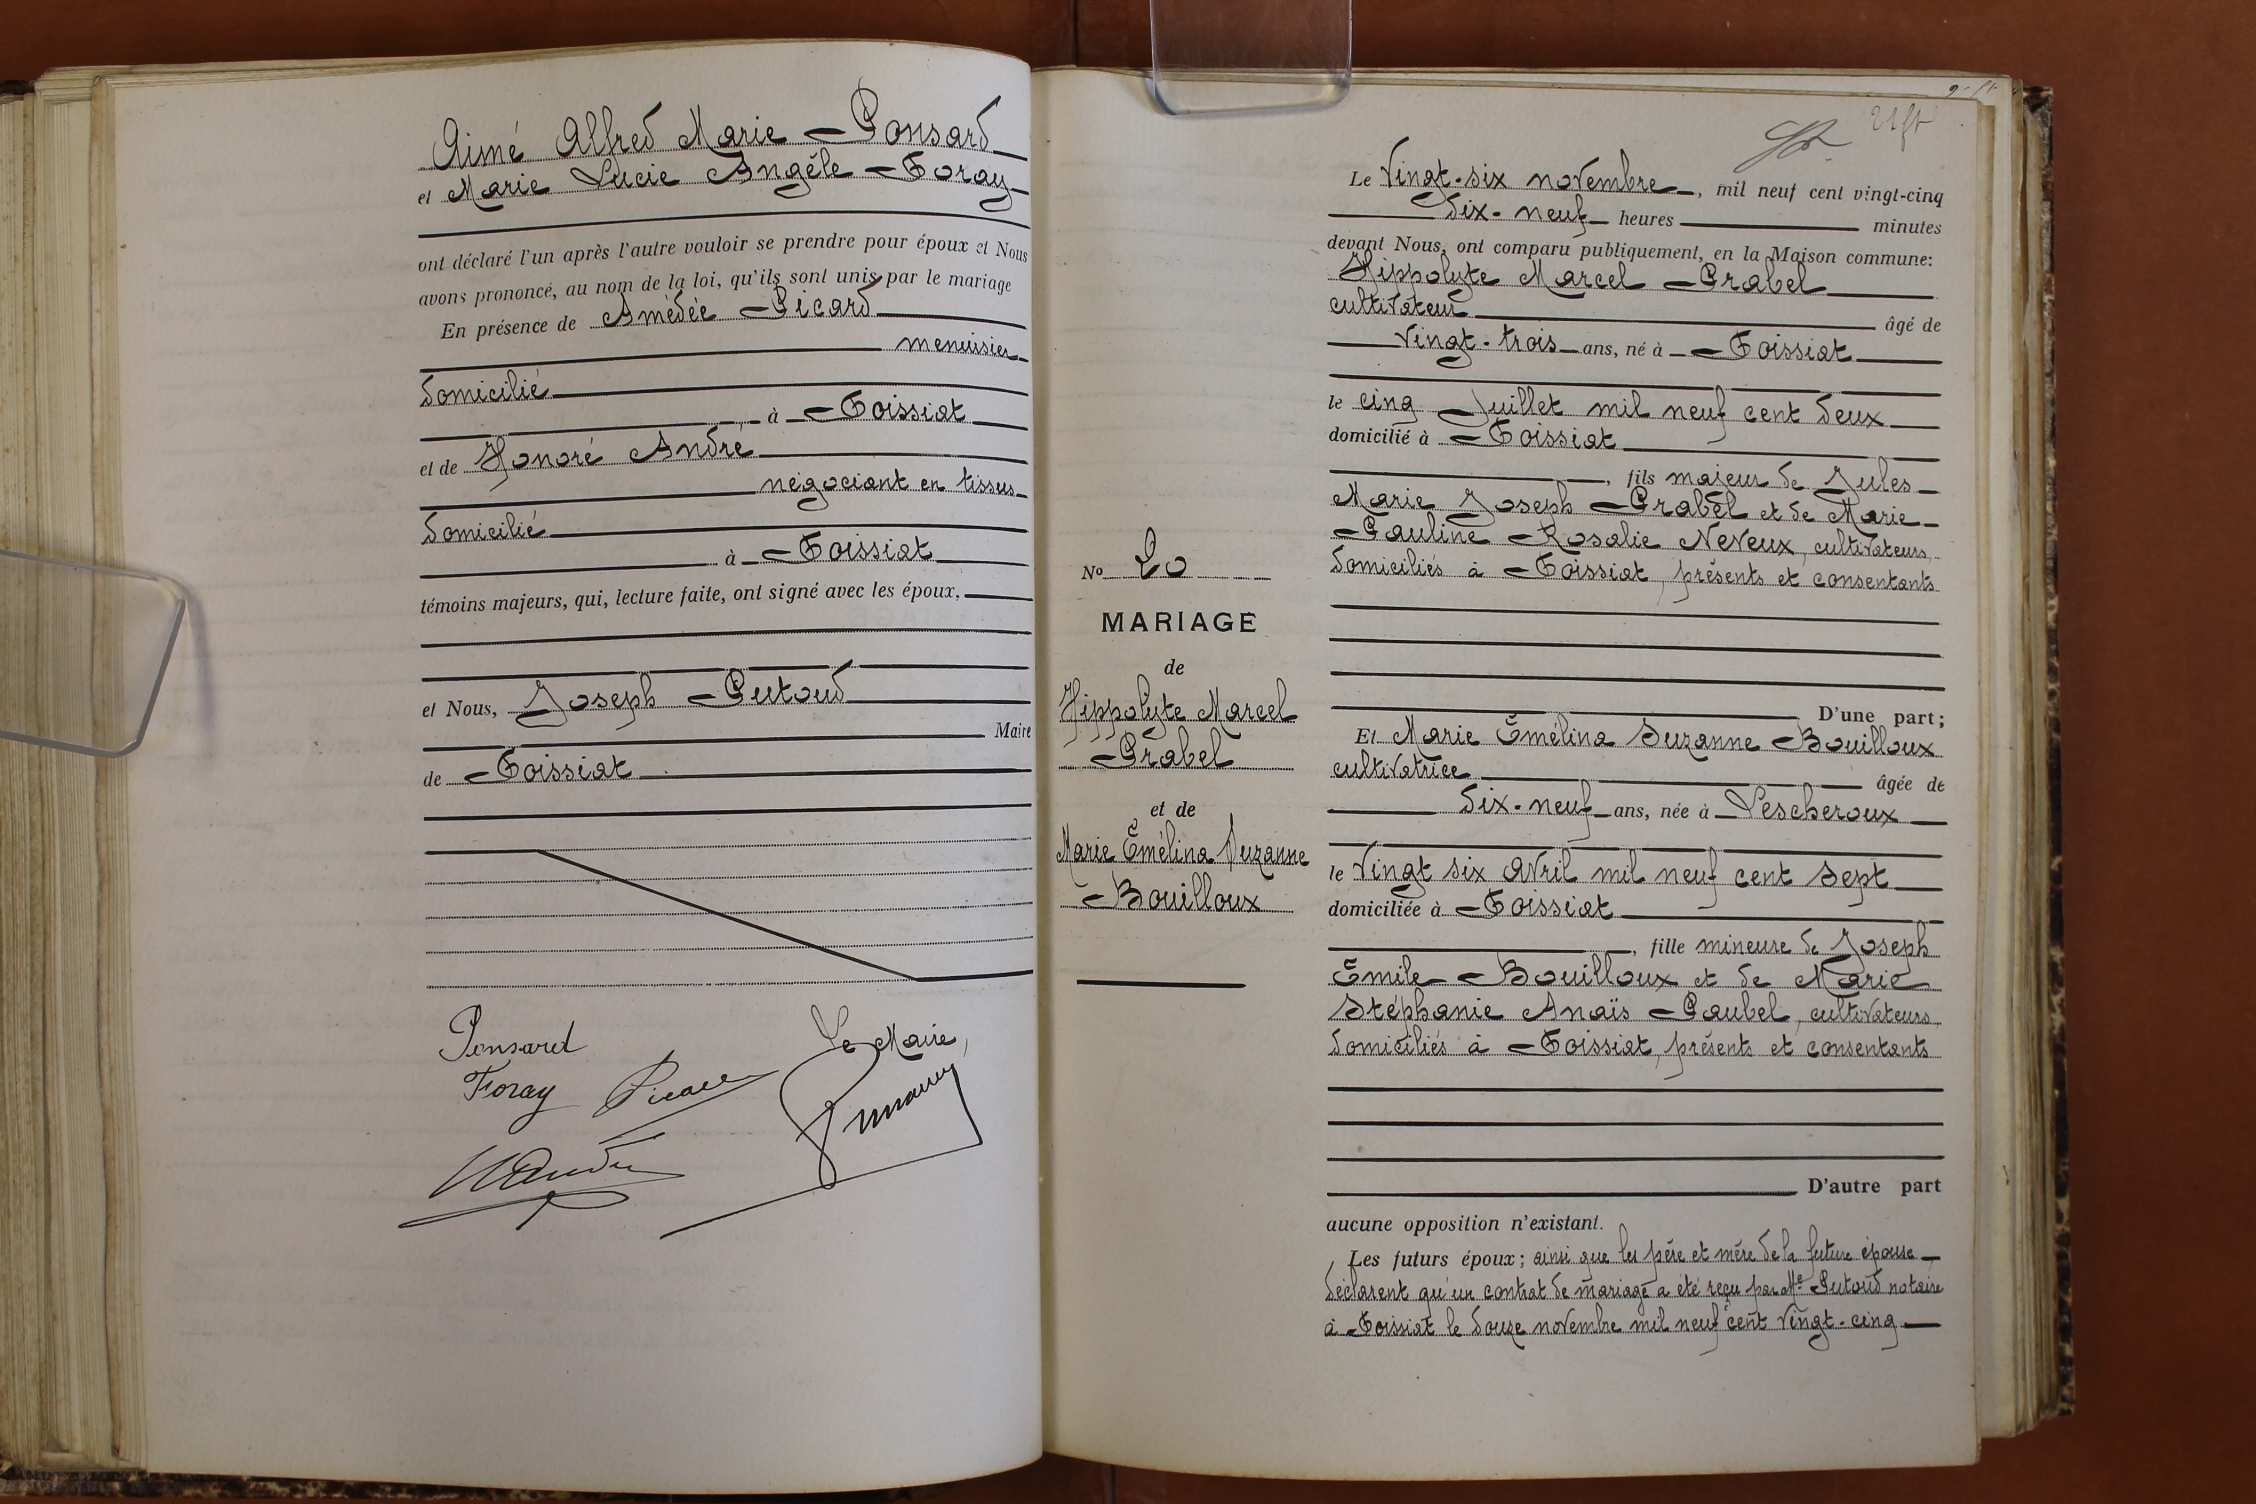 Aimé Alfred Marie Ponsard
et Marie Lucie Angèle Foray
ont déclaré l'un après l'autre vouloir se prendre pour époux et Nous
avons prononcé, au nom de la loi, qu'ils sont unis par le mariage
En présence de Amédée Picard
menuisier
domicilié
à Foissiat
et de Honoré André
négociant en tissus
domicilié
à Foissiat
témoins majeurs, qui, lecture faite, ont signé avec les époux,
et Nous, Joseph Putoud
Maire
de Foissiat
Ponsard
Le Maire,
Foray Picard
Le Vingt-six novembre, mil neuf cent vingt-cinq
dix-neuf heures minutes
devant Nous, ont comparu publiquement, en la Maison commune:
Hippolyte Marcel Prabel
cultivateur âgé de
vingt-trois ans, né à Foissiat
le cinq Juillet mil neuf cent deux
domicilié à Foissiat
, fils majeur de Jules
Marie Joseph Prabel et de Marie
Pauline Rosalie Neveux, cultivateurs,
domiciliés à Foissiat, présents et consentants
D'une part;
Et Marie Emélina Suzanne Bouilloux
cultivatrice âgée de
dix-neuf ans, née à Lescheroux
le vingt six avril mil neuf cent sept
domiciliée à Foissiat
, fille mineure de Joseph
Emile Bouilloux et de Marie
Stéphanie Anaïs Paubel, cultivateurs,
domiciliés à Foissiat, présents et consentants
D'autre part
aucune opposition n'existant.
Les futurs époux; ainsi que les père et mère de la future épouse
déclarent qu'un contrat de mariage a été reçu par Me Putoud notaire
à Foissiat le douze novembre mil neuf cent vingt-cinq
No 20
MARIAGE
de
Hippolyte Marcel
Prabel
et de
Marie Emélina Suzanne
Bouilloux